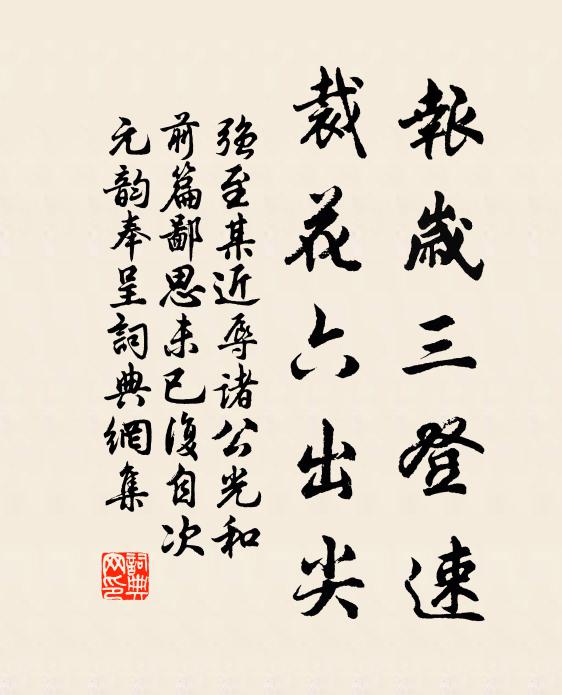 報歲三登速
裁花六出尖
強至某近辱諸公光和
前篇鄙思未已復自次
元韵奉呈詞典網集
詞典
网印